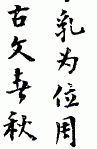 乳为位用
古文春秋